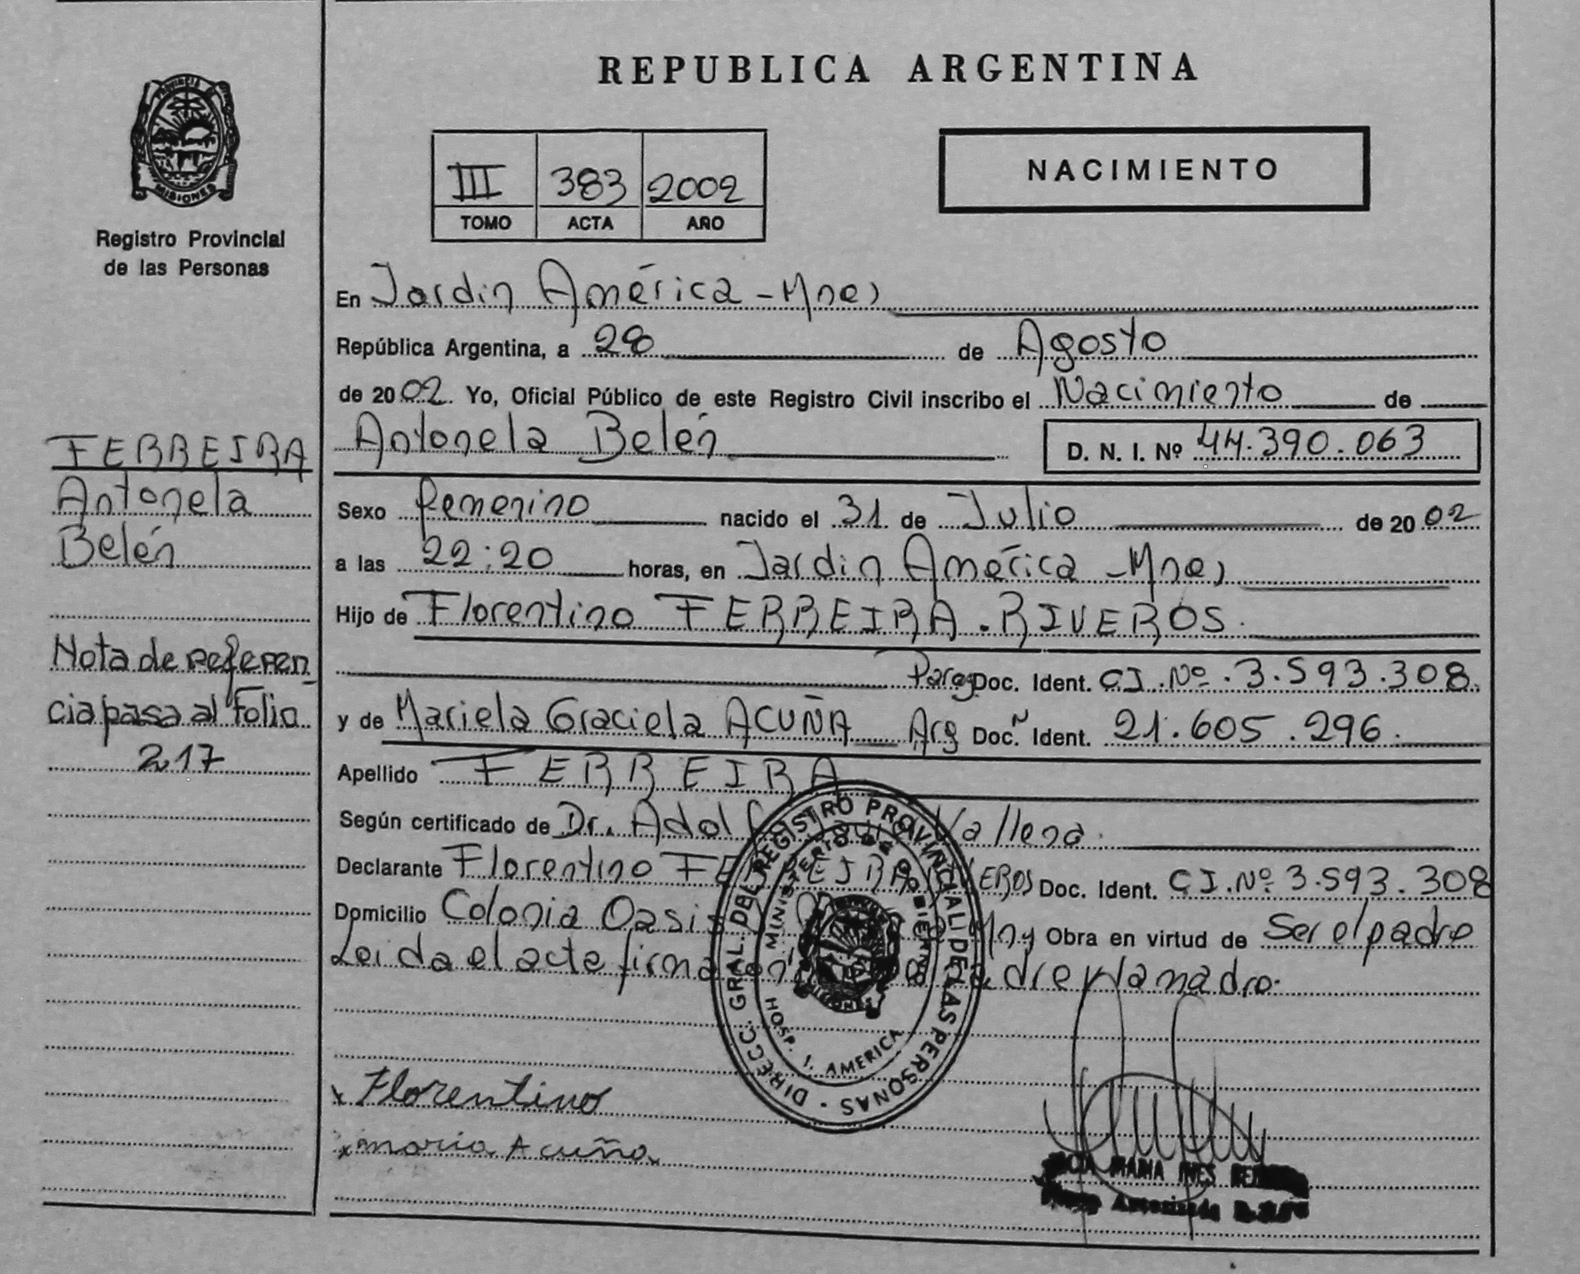 REPUBLICA ARGENTINA
PROVINCIA DE MISIONES
Registro Provincial
de las Personas
III 383 2002
TOMO ACTA AÑO
NACIMIENTO
En Jardin América - Mnes
República Argentina, a 28 de Agosto
de 2002. Yo, Oficial Público de este Registro Civil inscribo el Nacimiento de
Antonela Belén D. N. I. Nº 44.390.063
Sexo femenino nacido el 31 de Julio de 2002
a las 22:20 horas, en Jardin América - Mnes
Hijo de Florentino FERREIRA . RIVEROS
Parag Doc. Ident. CI. Nº. 3.593.308.
y de Mariela Graciela ACUÑA Arg Doc. Ident. 21.605.296.
Apellido FERREIRA
Según certificado de Dr. Vallena.
Declarante Florentino FERREIRA RIVEROS Doc. Ident. CI. Nº 3.593.308
Domicilio Colonia Oasis Obra en virtud de Ser el padre
Leida el acta firman padre y la madre.
FERREIRA
Antonela
Belén
Nota de referen
cia pasa al Folio
217
DIRECC. GRAL. DEL REGISTRO PROVINCIAL DE LAS PERSONAS
MINISTERIO DE GOBIERNO
HOSP. J. AMERICA
Florentino
x maria Acuña
MARIA INES
Autorizada